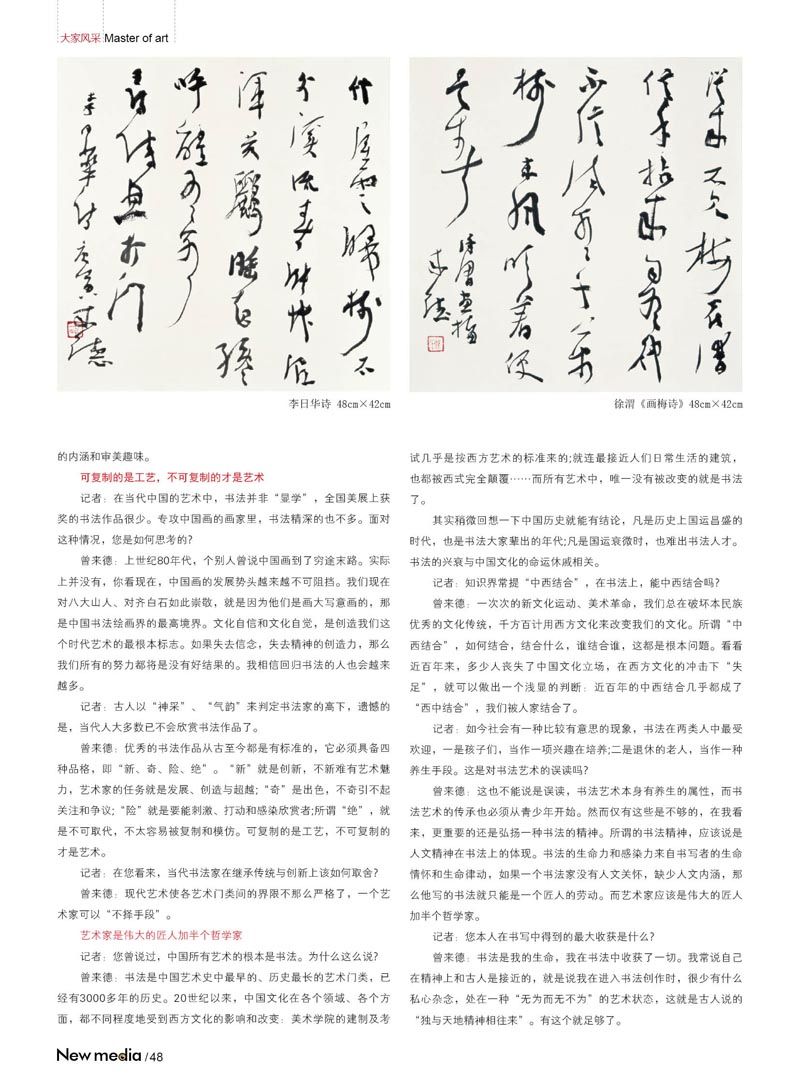 大家风采 Master of art
李日华诗 48cm×42cm
徐渭《画梅诗》48cm×42cm
的内涵和审美趣味。
可复制的是工艺，不可复制的才是艺术
记者：在当代中国的艺术中，书法并非“显学”，全国美展上获
奖的书法作品很少。专攻中国画的画家里，书法精深的也不多。面对
这种情况，您是如何思考的?
曾来德：上世纪80年代，个别人曾说中国画到了穷途末路。实际
上并没有，你看现在，中国画的发展势头越来越不可阻挡。我们现在
对八大山人、对齐白石如此崇敬，就是因为他们是画大写意画的，那
是中国书法绘画界的最高境界。文化自信和文化自觉，是创造我们这
个时代艺术的最根本标志。如果失去信念，失去精神的创造力，那么
我们所有的努力都将是没有好结果的。我相信回归书法的人也会越来
越多。
记者：古人以“神采”、“气韵”来判定书法家的高下，遗憾的
是，当代人大多数已不会欣赏书法作品了。
曾来德：优秀的书法作品从古至今都是有标准的，它必须具备四
种品格，即“新、奇、险、绝”。“新”就是创新，不新难有艺术魅
力，艺术家的任务就是发展、创造与超越;“奇”是出色，不奇引不起
关注和争议;“险”就是要能刺激、打动和感染欣赏者;所谓“绝”，就
是不可取代，不太容易被复制和模仿。可复制的是工艺，不可复制的
才是艺术。
记者：在您看来，当代书法家在继承传统与创新上该如何取舍?
曾来德：现代艺术使各艺术门类间的界限不那么严格了，一个艺
术家可以“不择手段”。
艺术家是伟大的匠人加半个哲学家
记者：您曾说过，中国所有艺术的根本是书法。为什么这么说?
曾来德：书法是中国艺术史中最早的、历史最长的艺术门类，已
经有3000多年的历史。20世纪以来，中国文化在各个领域、各个方
面，都不同程度地受到西方文化的影响和改变：美术学院的建制及考
试几乎是按西方艺术的标准来的;就连最接近人们日常生活的建筑，
也都被西式完全颠覆……而所有艺术中，唯一没有被改变的就是书法
了。
其实稍微回想一下中国历史就能有结论，凡是历史上国运昌盛的
时代，也是书法大家辈出的年代;凡是国运衰微时，也难出书法人才。
书法的兴衰与中国文化的命运休戚相关。
记者：知识界常提“中西结合”，在书法上，能中西结合吗?
曾来德：一次次的新文化运动、美术革命，我们总在破坏本民族
优秀的文化传统，千方百计用西方文化来改变我们的文化。所谓“中
西结合”，如何结合，结合什么，谁结合谁，这都是根本问题。看看
近百年来，多少人丧失了中国文化立场，在西方文化的冲击下“失
足”，就可以做出一个浅显的判断：近百年的中西结合几乎都成了
“西中结合”，我们被人家结合了。
记者：如今社会有一种比较有意思的现象，书法在两类人中最受
欢迎，一是孩子们，当作一项兴趣在培养;二是退休的老人，当作一种
养生手段。这是对书法艺术的误读吗?
曾来德：这也不能说是误读，书法艺术本身有养生的属性，而书
法艺术的传承也必须从青少年开始。然而仅有这些是不够的，在我看
来，更重要的还是弘扬一种书法的精神。所谓的书法精神，应该说是
人文精神在书法上的体现。书法的生命力和感染力来自书写者的生命
情怀和生命律动，如果一个书法家没有人文关怀，缺少人文内涵，那
么他写的书法就只能是一个匠人的劳动。而艺术家应该是伟大的匠人
加半个哲学家。
记者：您本人在书写中得到的最大收获是什么?
曾来德：书法是我的生命，我在书法中收获了一切。我常说自己
在精神上和古人是接近的，就是说我在进入书法创作时，很少有什么
私心杂念，处在一种“无为而无不为”的艺术状态，这就是古人说的
“独与天地精神相往来”。有这个就足够了。
New media /48